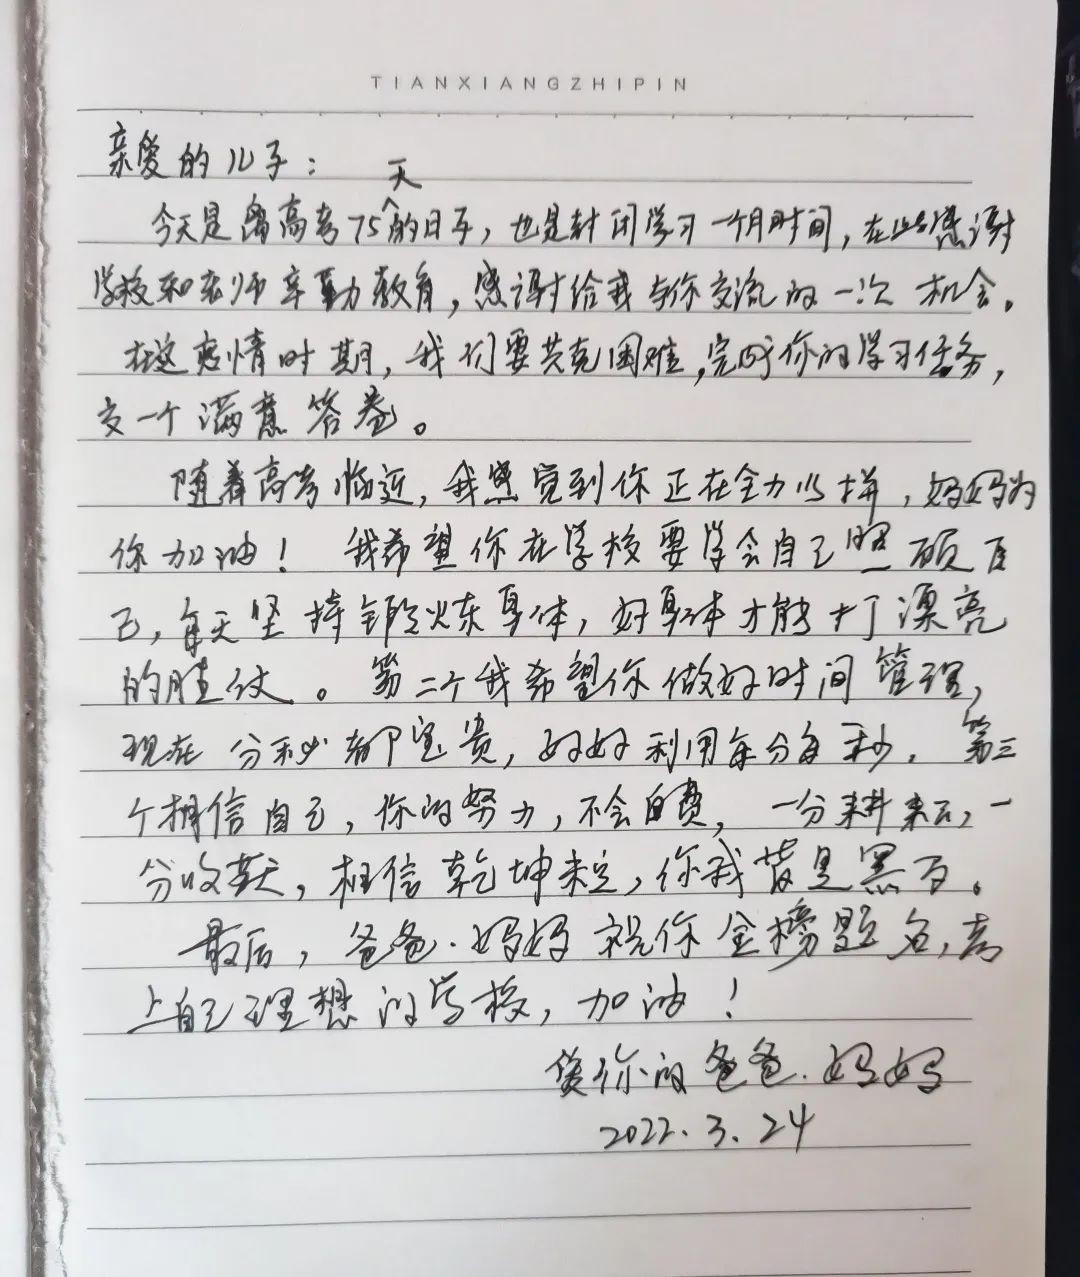 TIANXIANGZHIPIN
亲爱的儿子：
今天是离高考75天的日子，也是封闭学习一个月时间，在此感谢
学校和老师辛勤教育，感谢给我与你交流的一次机会。
在这疫情时期，我们要共克困难，完成你的学习任务，
交一个满意答卷。
随着高考临近，我感觉到你正在全力以拼，妈妈为
你加油！我希望你在学校要学会自己照顾自
己，每天坚持锻炼身体，好身体才能打漂亮
的胜仗。第二个我希望你做好时间管理，
现在分秒都宝贵，好好利用每分每秒。第三
个相信自己，你的努力，不会白费，一分耕耘，一
分收获，相信乾坤未定，你我皆是黑马。
最后，爸爸·妈妈祝你金榜题名，考
上自己理想的学校，加油！
爱你的爸爸·妈妈
2022.3.24